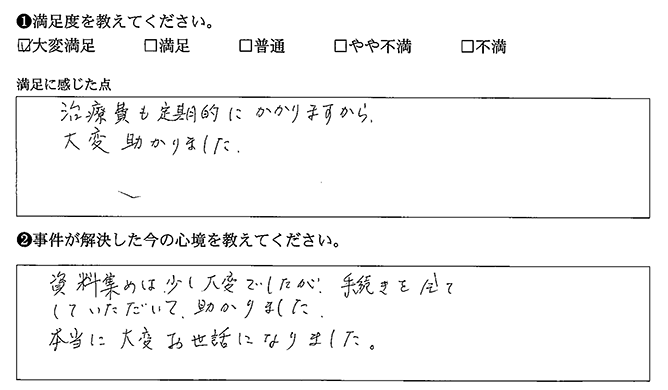 ❶満足度を教えてください。
☑大変満足 □満足 □普通 □やや不満 □不満
満足に感じた点
治療費も定期的にかかりますから、
大変助かりました.
❷事件が解決した今の心境を教えてください。
資料集めは少し大変でしたが、手続きを全て
していただいて、助かりました.
本当に大変お世話になりました。